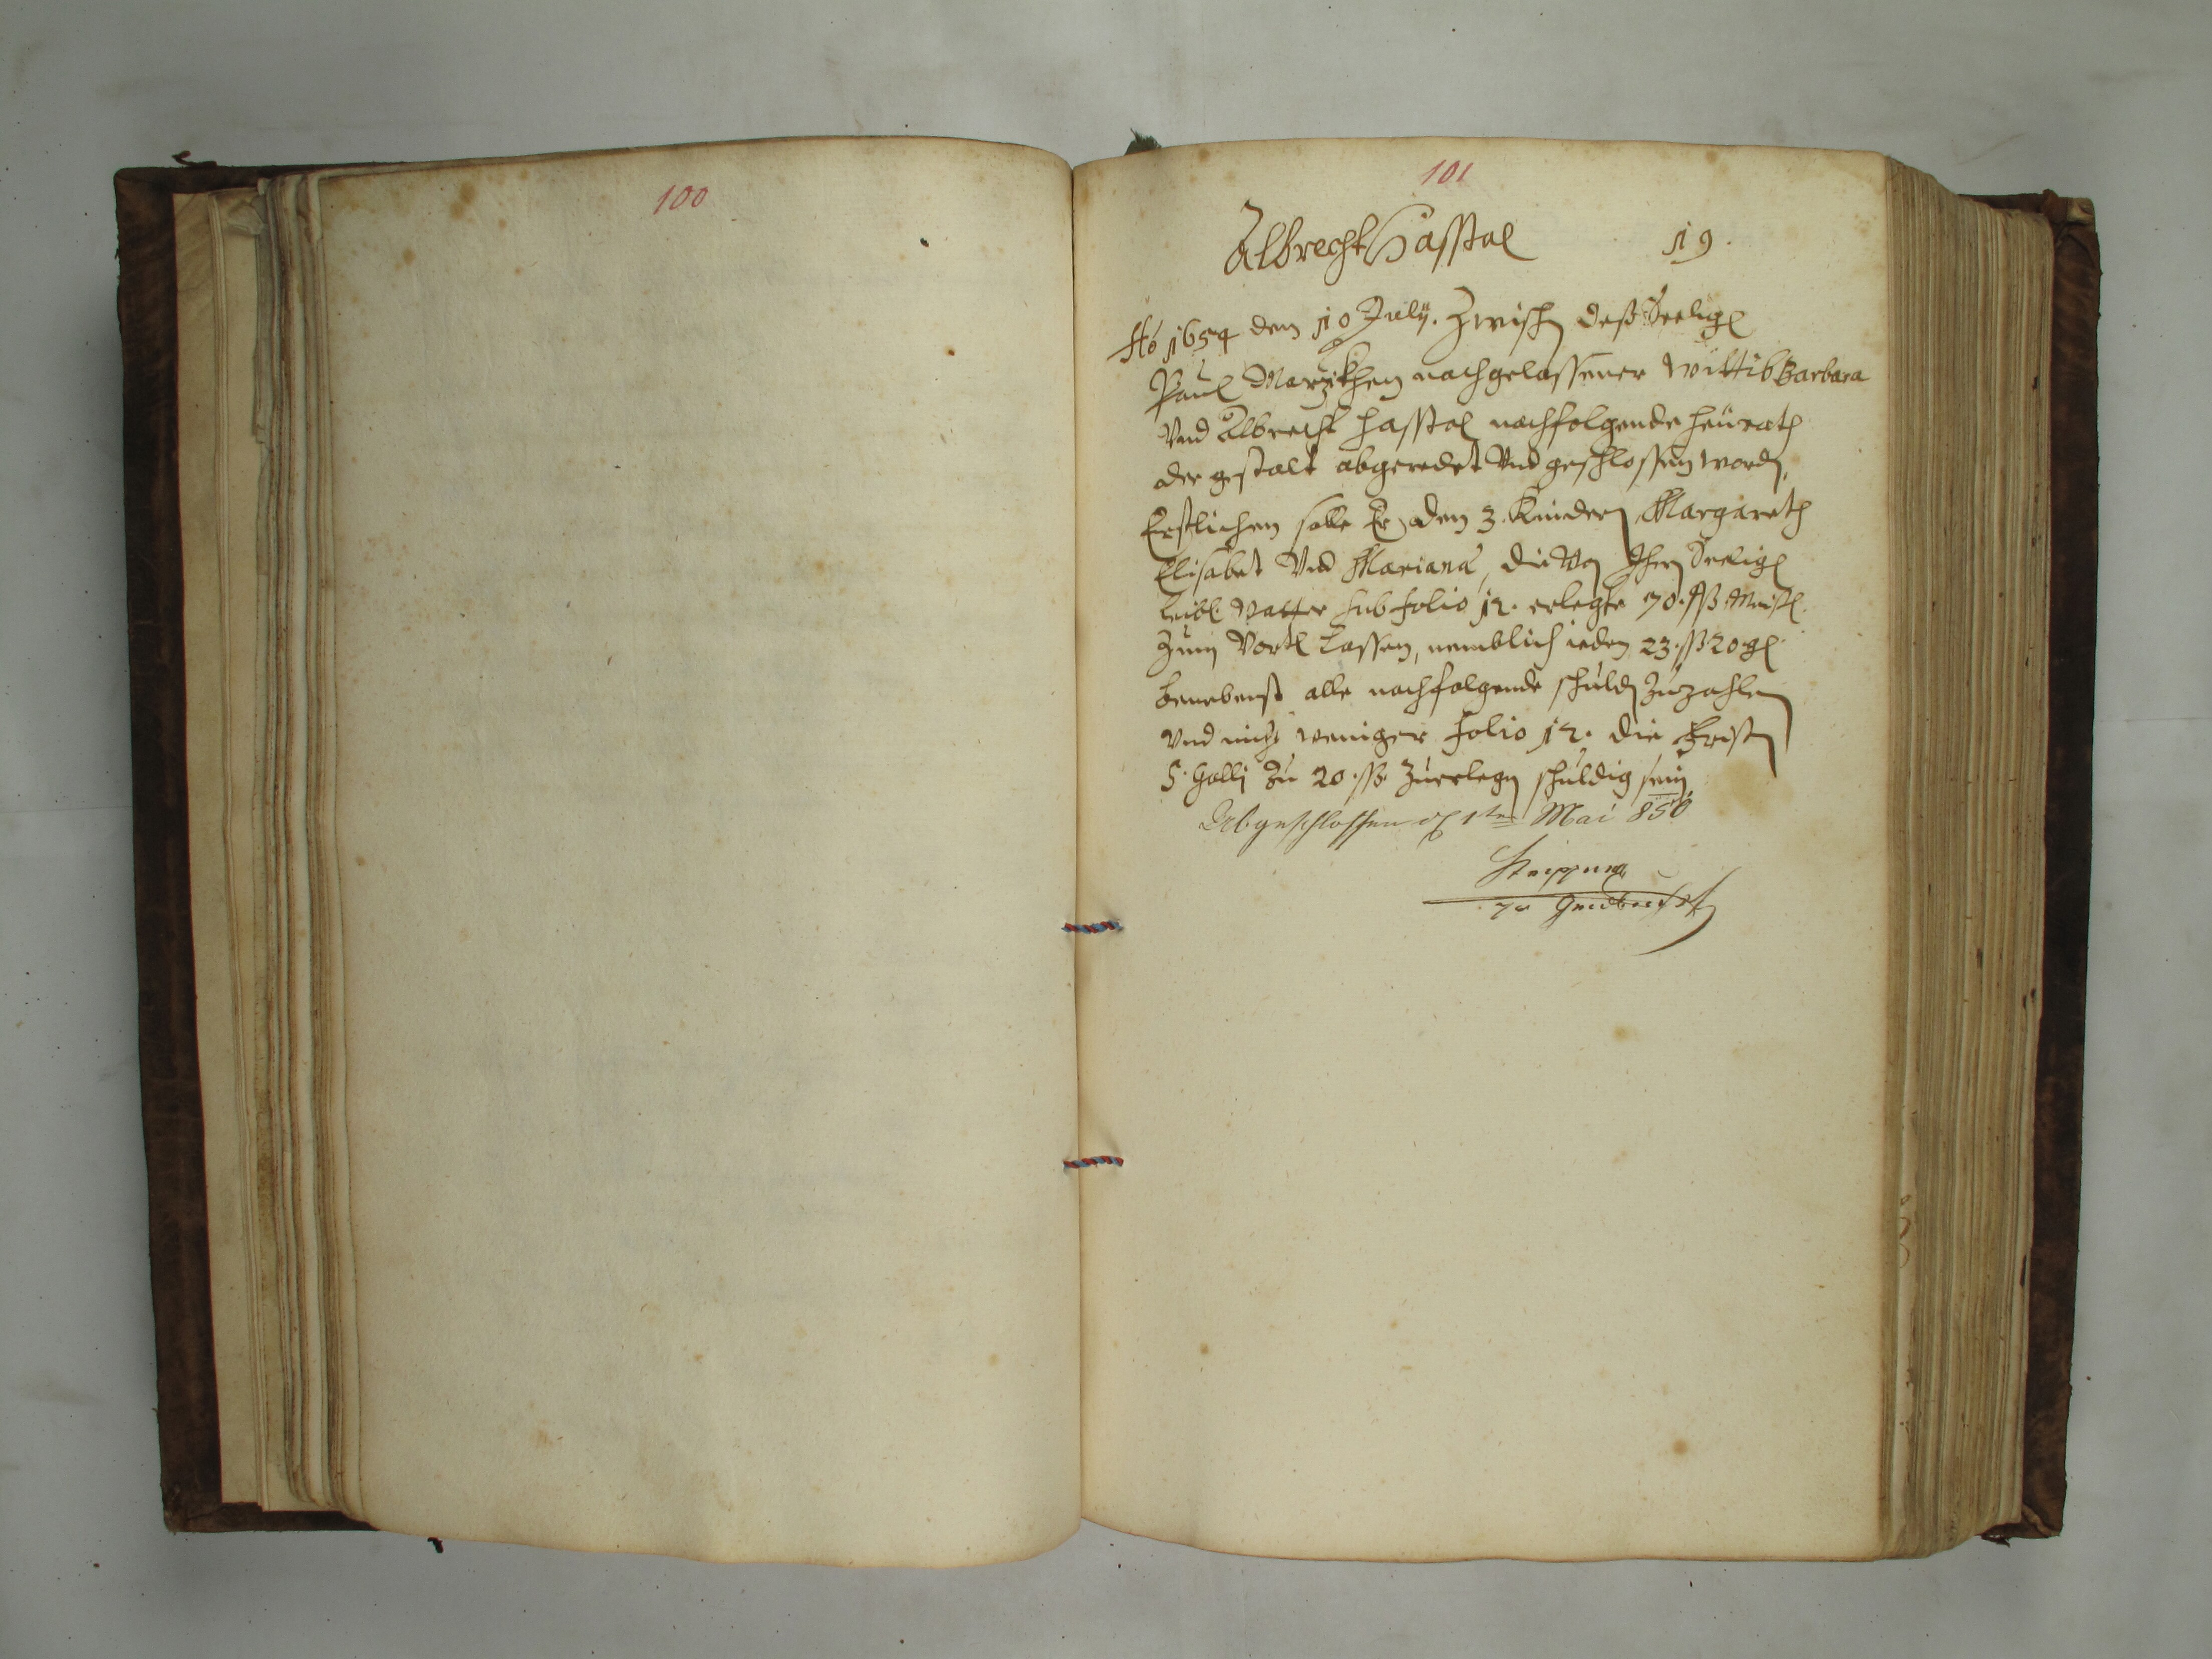 100
101
Albrecht Hasstal 19.
Ao 1654 den 10 July. Zwischen deß Seelig
Paul nachgelassener Wittib Barbara
Vnd Albrecht Hasstal nachfolgende heürath
der gestalt abgeredet Vnd geschlossen worden,
Erstlichen solle Er den 3. Kindern Margareth
Elisabet Vnd Mariana, die Von Ihren Seelig
Leibl. Vatter sub folio 12. erlegte 70. ß Meisl.
Zum Vortl Lassen, nemblich ieden 23. ß 20. gl
benebenst alle nachfolgende schulden Zuzahlen
Vnd nicht weniger folio 12. die Fristen
S: Galli Zu 20. ß Zuerlegen schuldig sein.
Abgeschlossen d 1ten Mai 850